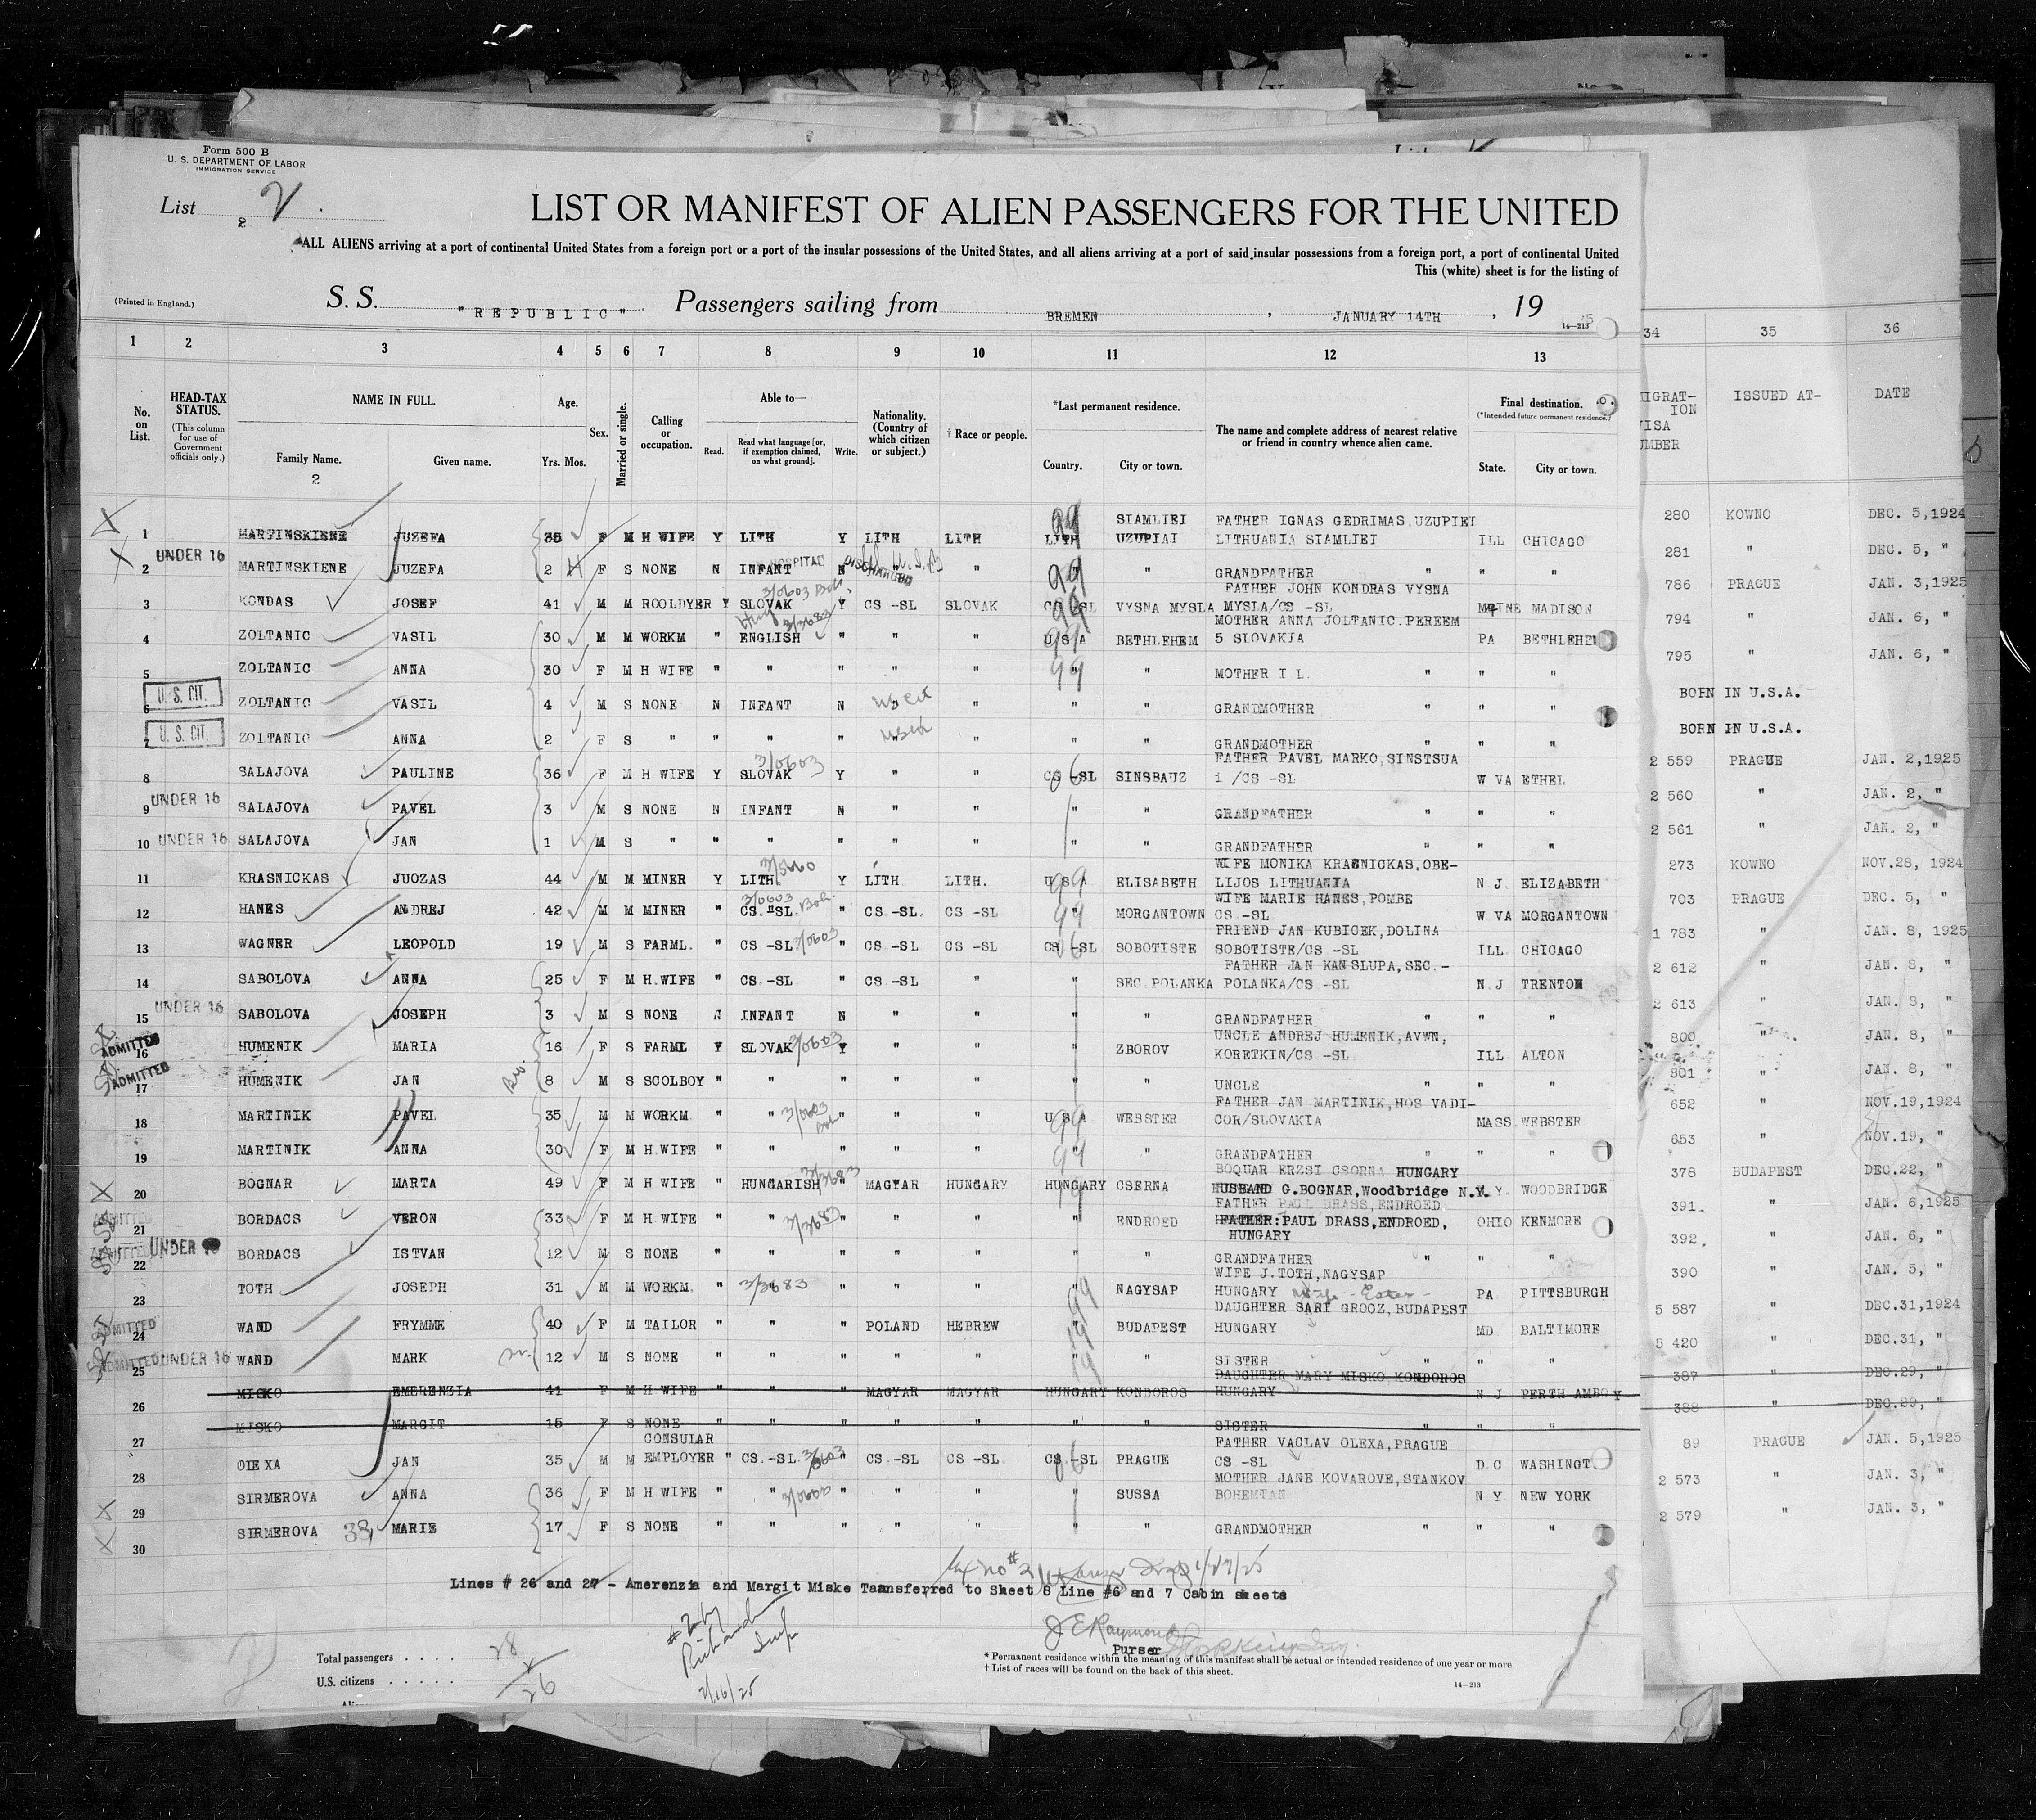 Form 500 B
U. S. DEPARTMENT OF LABOR
IMMIGRATION SERVICE
List 2
2
LIST OR MANIFEST OF ALIEN PASSENGERS FOR THE UNITED
ALL ALIENS arriving at a port of continental United States from a foreign port or a port of the insular possessions of the United States, and all aliens arriving at a port of said insular possessions from a foreign port, a port of continental United
This (white) sheet is for the listing of
(Printed in England.)
S. S. "REPUBLIC" Passengers sailing from BREMEN , JANUARY 14TH , 19 25
14—213
1 2 3 4 5 6 7 8 9 10 11 12 13 34 35 36
No. on List.
HEAD-TAX STATUS.
(This column for use of Government officials only.)
NAME IN FULL.
Family Name.
2
Given name.
Age.
Yrs. Mos.
Sex.
Married or single.
Calling or occupation.
Able to—
Read.
Read what language [or, if exemption claimed, on what ground].
Write.
Nationality. (Country of which citizen or subject.)
† Race or people.
*Last permanent residence.
Country.
City or town.
The name and complete address of nearest relative or friend in country whence alien came.
Final destination.
(*Intended future permanent residence.)
State.
City or town.
MIGRATION VISA NUMBER
ISSUED AT-
DATE
1 MARTINSKIENE JUZEFA 35 F M H WIFE Y LITH Y LITH LITH LITH SIAMLIEI UZUPIAI FATHER IGNAS GEDRIMAS, UZUPIEI LITHUANIA SIAMLIEI ILL CHICAGO 280 KOWNO DEC. 5, 1924
2 UNDER 16 MARTINSKIENE JUZEFA 2 F S NONE N INFANT HOSPITAL N DISCHARGED " " " GRANDFATHER " " " 281 " DEC. 5, "
3 KONDAS JOSEF 41 M M ROOLDYER Y SLOVAK 3/0603 Y CS -SL SLOVAK CS -SL VYSNA MYSLA FATHER JOHN KONDRAS VYSNA MYSLA/CS -SL MAINE MADISON 786 PRAGUE JAN. 3, 1925
4 ZOLTANIC VASIL 30 M M WORKM " ENGLISH 3/3683 " " " U S A BETHLEHEM MOTHER ANNA JOLTANIC.PEREEM 5 SLOVAKJA PA BETHLEHEM 794 " JAN. 6, "
5 ZOLTANIC ANNA 30 F M H WIFE " " " " " " " MOTHER I L. " " " 795 " JAN. 6, "
6 U. S. CIT. ZOLTANIC VASIL 4 M S NONE N INFANT N " " " " GRANDMOTHER " " " BORN IN U.S.A.
7 U. S. CIT. ZOLTANIC ANNA 2 F S " " " " " " " " GRANDMOTHER " " " BORN IN U.S.A.
8 SALAJOVA PAULINE 36 F M H WIFE Y SLOVAK 3/0603 Y " " CS -SL SINSBAUZ FATHER PAVEL MARKO, SINSTSUA 1 /CS -SL W VA ETHEL 2 559 PRAGUE JAN. 2, 1925
9 UNDER 16 SALAJOVA PAVEL 3 M S NONE N INFANT N " " " " GRANDFATHER " " " 2 560 " JAN. 2, "
10 UNDER 16 SALAJOVA JAN 1 M S " " " " " " " " GRANDFATHER " " " 2 561 " JAN. 2, "
11 KRASNICKAS JUOZAS 44 M M MINER Y LITH. Y LITH LITH. U S A ELISABETH WIFE MONIKA KRASNICKAS, OBE-LIJOS LITHUANIA N J ELIZABETH 273 KOWNO NOV.28, 1924
12 HANES ANDREJ 42 M M MINER " CS.-SL. 3/0603 " CS -SL. CS -SL " MORGANTOWN WIFE MARIE HANES, POMBE CS.-SL W VA MORGANTOWN 703 PRAGUE DEC. 5, "
13 WAGNER LEOPOLD 19 M S FARML. " CS -SL 3/0603 " CS -SL CS -SL CS -SL SOBOTISTE FRIEND JAN KUBICEK, DOLINA SOBOTISTE/CS -SL ILL CHICAGO 1 783 " JAN. 8, 1925
14 SABOLOVA ANNA 25 F M H.WIFE " CS -SL " CS -SL " " SEC POLANKA FATHER JAN KANSLUPA, SEC.-POLANKA/CS -SL N J TRENTON 2 612 " JAN. 8, "
15 UNDER 16 SABOLOVA JOSEPH 3 M S NONE N INFANT N " " " " GRANDFATHER " " " 2 613 " JAN. 8, "
16 ADMITTED HUMENIK MARIA 16 F S FARML Y SLOVAK 3/0603 Y " " " ZBOROV UNCLE ANDREJ HUMENIK, AVWN, KORETKIN/CS -SL ILL ALTON 800 " JAN. 8, "
17 ADMITTED HUMENIK JAN 8 M S SCOLBOY " " " " " " " UNCLE " " " 801 " JAN. 8, "
18 MARTINIK PAVEL 35 M M WORKM " " 3/0603 " " " U S A WEBSTER FATHER JAN MARTINIK, HOS VADI-COR/SLOVAKIA MASS WEBSTER 652 " NOV.19, 1924
19 MARTINIK ANNA 30 F M H WIFE " " " " " " " GRANDFATHER " " " 653 " NOV.19, "
20 BOGNAR MARTA 49 F M H WIFE " HUNGARISH 3/3683 " MAGYAR HUNGARY HUNGARY CSERNA BOQUAR ERZSI CSORNA HUNGARY HUSBAND G.BOGNAR, Woodbridge N.Y. N.Y. WOODBRIDGE 378 BUDAPEST DEC.22, "
21 ADMITTED BORDACS VERON 33 F M H WIFE " " 3/3683 " " " " ENDROED FATHER PAUL DRASS, ENDROED FATHER:PAUL DRASS, ENDROED, HUNGARY OHIO KENMORE 391. " JAN. 6, 1925
22 ADMITTED UNDER 16 BORDACS ISTVAN 12 M S NONE " " " " " " " GRANDFATHER " " " 392. " JAN. 6, "
23 TOTH JOSEPH 31 M M WORKM " 3/3683 " " " " NAGYSAP WIFE J.TOTH, NAGYSAP HUNGARY PA PITTSBURGH 390 " JAN. 5, "
24 ADMITTED WAND FRYMME 40 F M TAILOR " " " POLAND HEBREW " BUDAPEST DAUGHTER SARI GROOZ, BUDAPEST HUNGARY MD. BALTIMORE 5 587 " DEC.31, 1924
25 ADMITTED UNDER 16 WAND MARK 12 M S NONE " " " " " " " SISTER " " " 5 420 " DEC.31, "
26 MISKO EMERENZIA 41 F M H WIFE " " " MAGYAR MAGYAR HUNGARY KONDOROS DAUGHTER MARY MISKO, KONDOROS HUNGARY N J PERTH AMBOY 387 " DEC.29, "
27 MISKO MARGIT 15 F S NONE " " " " " " " SISTER " " " 388 " DEC.29, "
28 OLEXA JAN 35 M M CONSULAR EMPLOYER " CS.-SL. 3/0603 " CS.-SL CS -SL. CS.-SL PRAGUE FATHER VACLAV OLEXA, PRAGUE CS -SL D C WASHINGT 89 PRAGUE JAN. 5, 1925
29 SIRMEROVA ANNA 36 F M H WIFE " " 3/0603 " " " " SUSSA MOTHER JANE KOVAROVE, STANKOV BOHEMIAN N Y NEW YORK 2 573 " JAN. 3, "
30 SIRMEROVA 38 MARIE 17 F S NONE " " " " " " " GRANDMOTHER " " " 2 579 " JAN. 3, "
Lines # 26 and 27 - Amerenzia and Margit Miske Taansferred to Sheet 8 Line #6 and 7 Cabin sheets
J E Raymond
Purser
Total passengers . . . . 28
U.S. citizens . . . . . 2
26
2/16/25
* Permanent residence within the meaning of this manifest shall be actual or intended residence of one year or more
† List of races will be found on the back of this sheet.
14—213